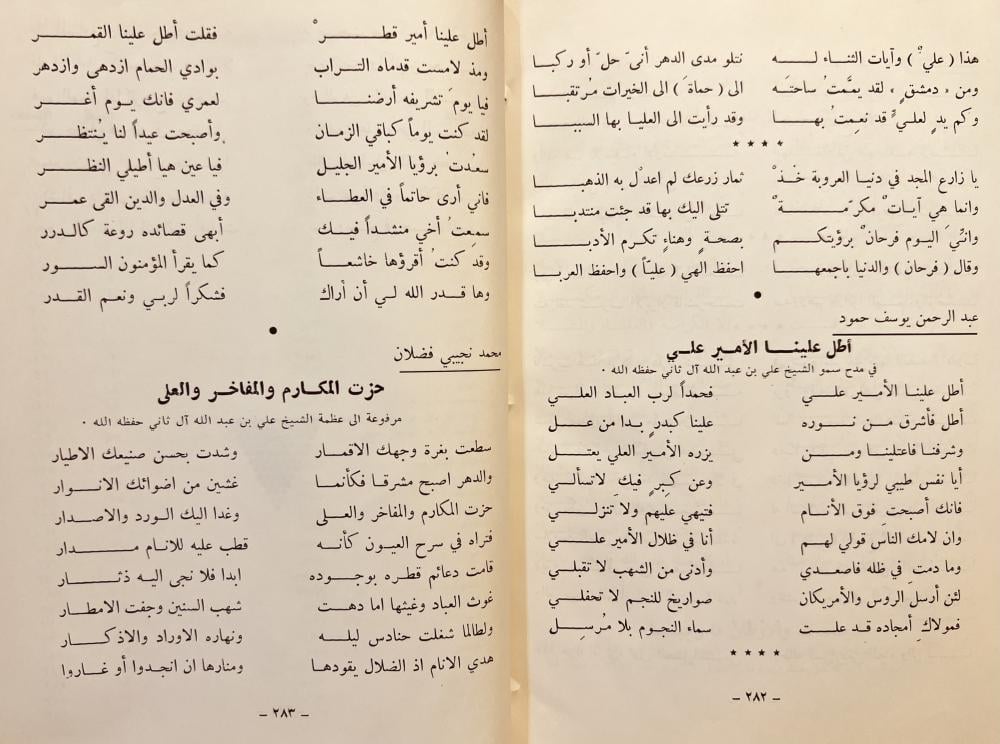 هذا ( عليٌ ) وآيات الثناء لـــــه نتلو مدى الدهر أنىّ حلّ أو ركبـا
ومن « دمشقٍ » لقد يمَّمتُ ساحتَه الى ( حماةَ ) الى الخيرات مُرتقبـا
وكم يدٍ لعليٍّ قد نعِمتُ بهـــا وقد رأيت الى العليا بها السببـا
* * * *
يا زارع المجد في دنيـا العروبة خـذْ ثمار زرعك لم اعدلْ به الذهبـا
وانما هي آيـاتٌ مكرّمـــةٌ تتلى اليك بها قد جئت منتدبـا
وانّني اليوم فرحانٌ برؤيتكـــم بصحةٍ وهناءٍ تكرم الأدبـــا
وقال ( فرحان ) والدنيا باجمعهـــا احفظ الهي ( عليّاً ) واحفظ العربـا
عبد الرحمن يوسف حمود
أطل علينـــا الأمـير علـي
في مدح سمو الشيخ علي بن عبد الله آل ثاني حفظه الله .
أطل علينـا الأمـير علـــي فحمداً لرب العباد العلـــي
أطل فأشرق مـن نـــوره علينا كبدرٍ بـدا من عـــل
وشرفنـا فاعتلينـا ومـــن يزره الأمير العلي يعتـــل
أيا نفس طيبي لرؤيا الأمـــير وعن كِبرٍ فيكِ لاتسألـــي
فانك أصبحتِ فوق الأنـــام فتيهي عليهم ولا تنزلـــي
وان لامك الناس قولي لهـــم أنا في ظلال الأمير علـــي
وما دمتِ في ظله فاصعـــدي وأدنى من الشهب لا تقبلـــي
لئن أرسل الروس والأمريكان صواريخ للنجم لا تحفلـــي
فمولاكِ أمجاده قـد علـــت سماء النجوم بلا مُرسِـــل
* * * *
– ٢٨٢ –
أطل علينا أمير قطـــرْ فقلت أطل علينا القمـــر
ومذ لامست قدماه التـراب بوادي الحمام ازدهى وازدهر
فيا يومَ تشريفه أرضنـــا لعمري فانك يـوم أغـــر
لقد كنت يوماً كباقي الزمان وأصبحت عيداً لنا يُنتظـــر
سعُدتَ برؤيا الأمير الجليل فيا عين هيا أطيلي النظـــر
فاني أرى حاتماً في العطـاء وفي العدل والدين القى عمـــر
سمعتُ أخي منشداً فيـك أبهى قصائده روعة كالدرر
وقد كنتُ أقرؤها خاشعـاً كما يقرأ المؤمنون الســـور
وها قـدر الله لـي أن أراك فشكراً لربـي ونعم القدر
محمد نجيبي فضلان
حزت المكـارم والمفاخر والعلى
مرفوعة الى عظمة الشيخ علي بن عبد الله آل ثاني حفظه الله .
سطعت بغرة وجهك الاقمـار وشدت بحسن صنيعك الاطيـار
والدهر اصبح مشرقـا فكأنمـا غشين من اضوائك الانـــوار
حزت المكارم والمفاخر والعلـى وغدا اليك الورد والاصـدار
فتراه في سرح العيـون كأنـه قطب عليه للانام مـــدار
قامت دعائم قطره بوجـوده ابدا فلا نجى اليـه دثـــار
غوث العباد وغيثها اما دهـت شهب السنين وجفت الامطـار
ولطالما شغلت حنادس ليلـه ونهاره الاوراد والاذكـــار
هدي الانام اذ الضلال يقودهـا ومنارها ان انجدوا أو غـاروا
– ٢٨٣ –